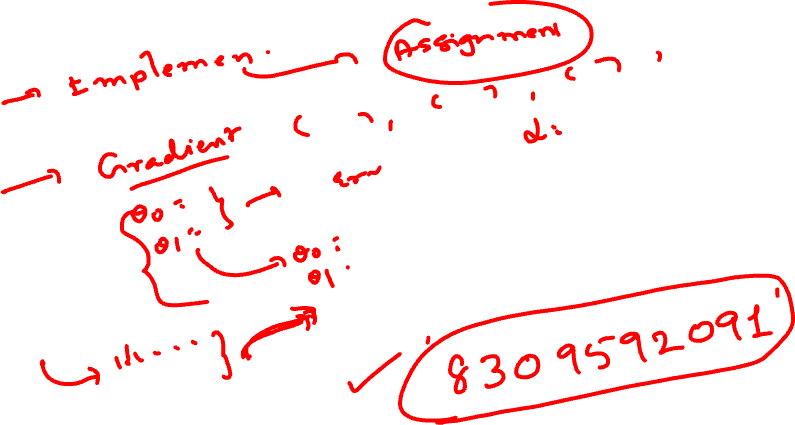 → Implemen. Assignment
→ Gradient ( ), ( ), ( ),
α:
θ0 : } → Err
θ1 : → θ0 :
θ1 :
8309592091